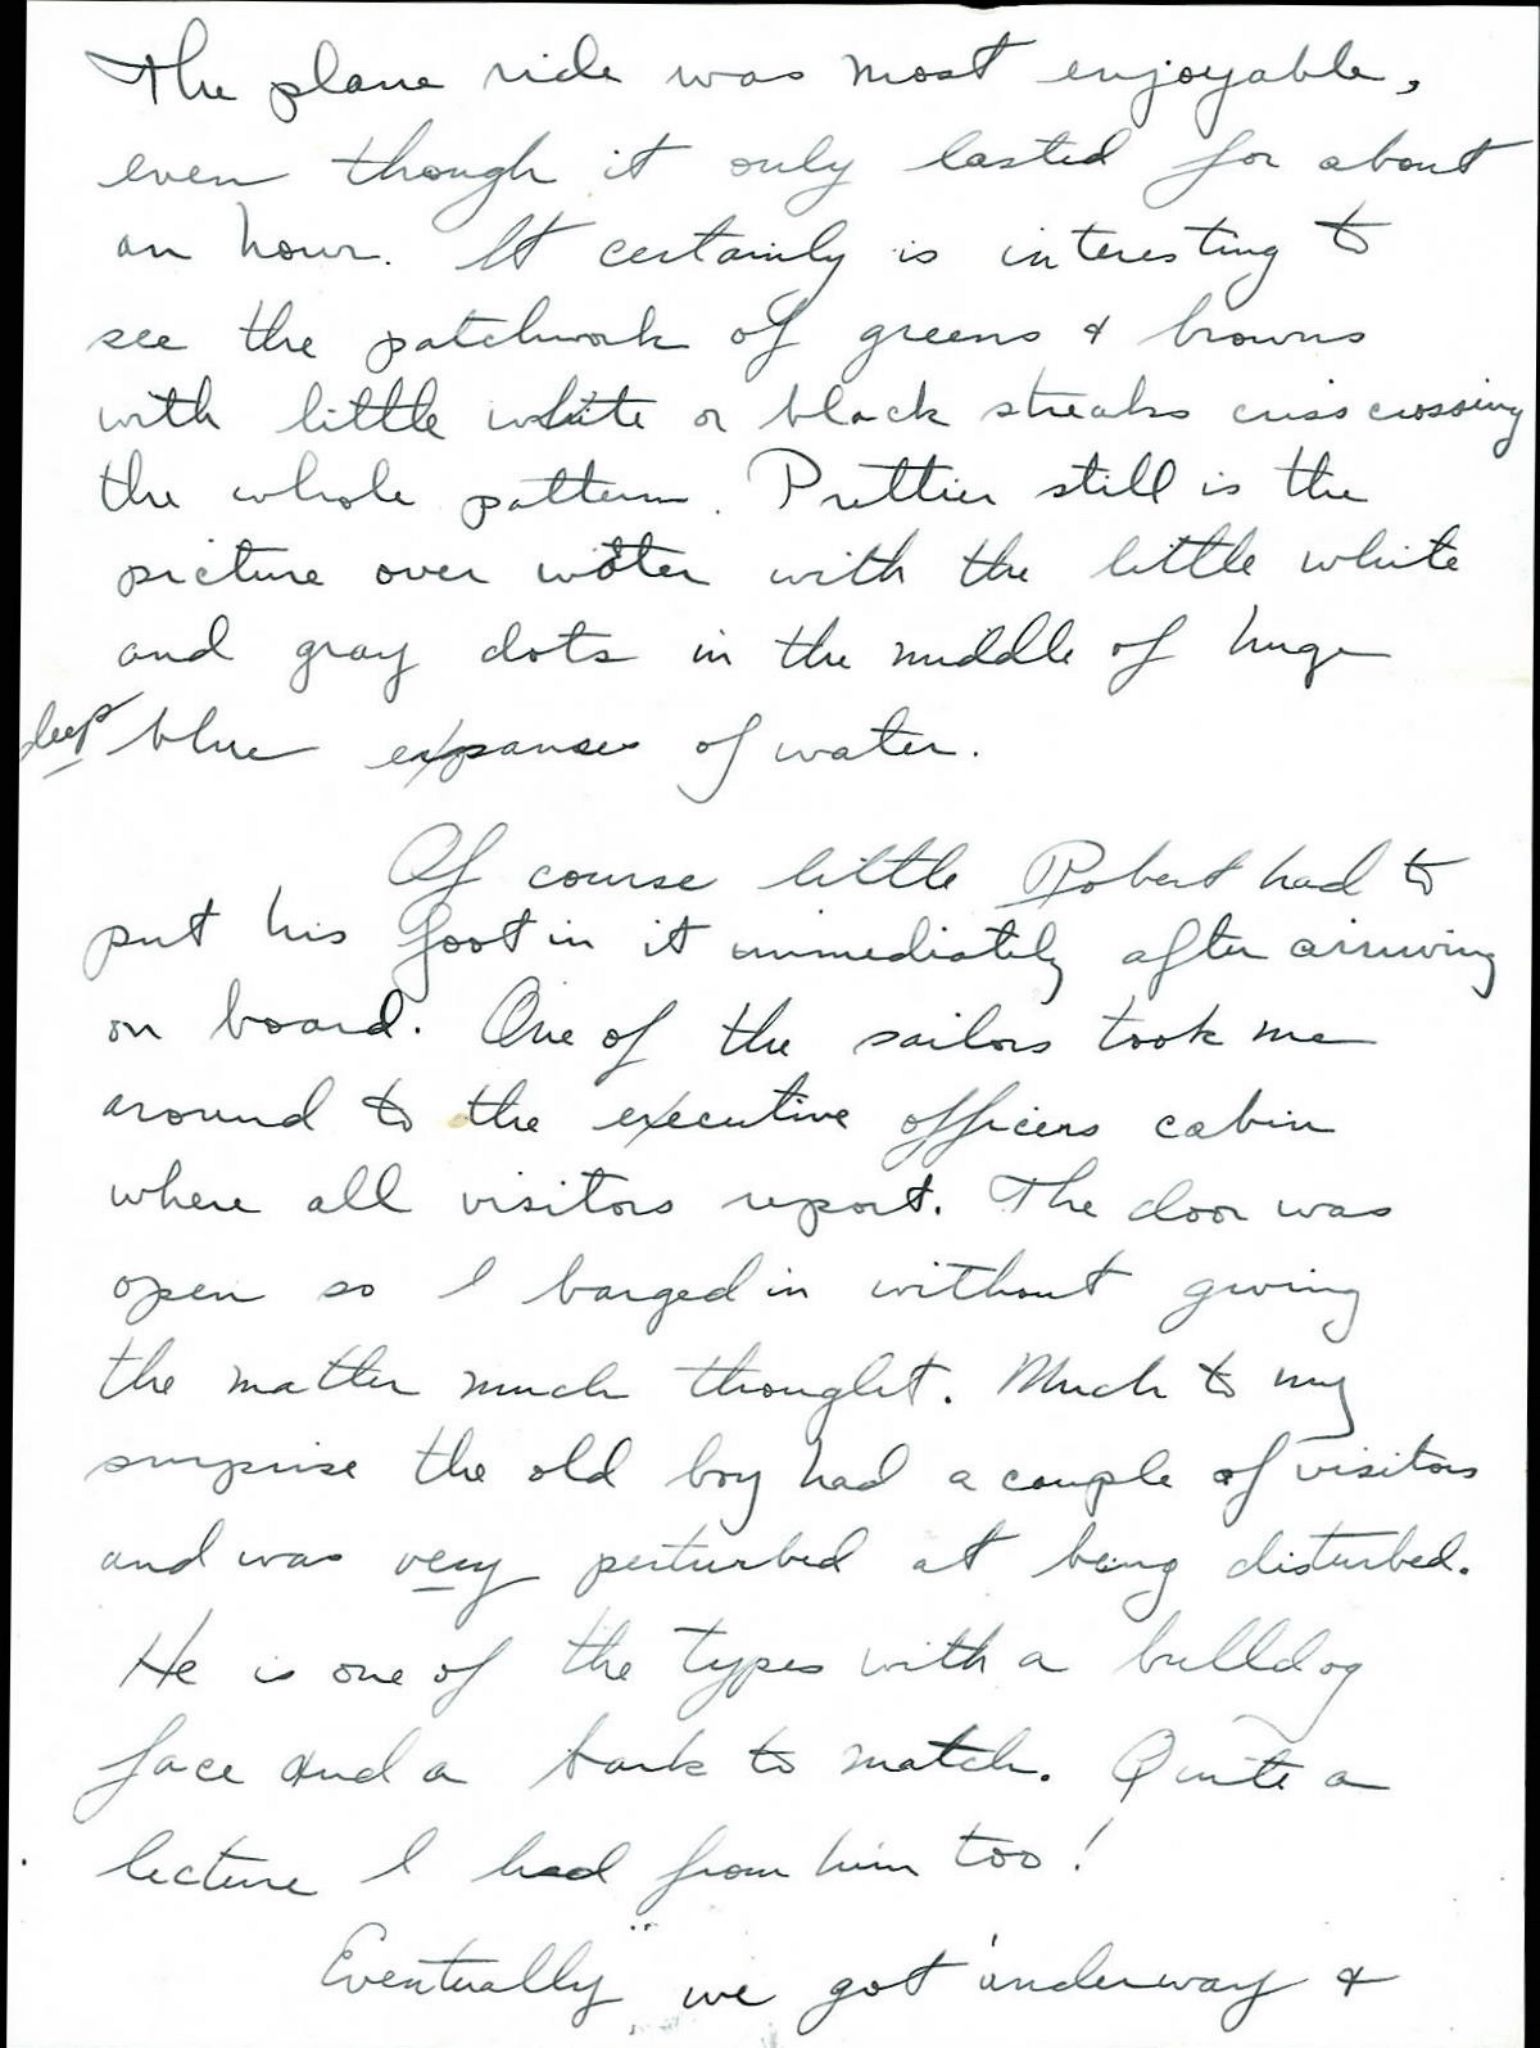 The plane ride was most enjoyable,
even though it only lasted for about
an hour. It certainly is interesting to
see the patchwork of greens & browns
with little white or black streaks crisscrossing
the whole pattern. Prettier still is the
picture over water with the little white
and gray dots in the middle of huge
deep blue expanses of water.
Of course little Robert had to
put his foot in it immediately after arriving
on board. One of the sailors took me
around to the executive officers cabin
where all visitors report. The door was
open so I barged in without giving
the matter much thought. Much to my
surprise the old boy had a couple of visitors
and was very perturbed at being disturbed.
He is one of the types with a bulldog
face and a bark to match. Quite a
lecture I had from him too!
Eventually we got underway &